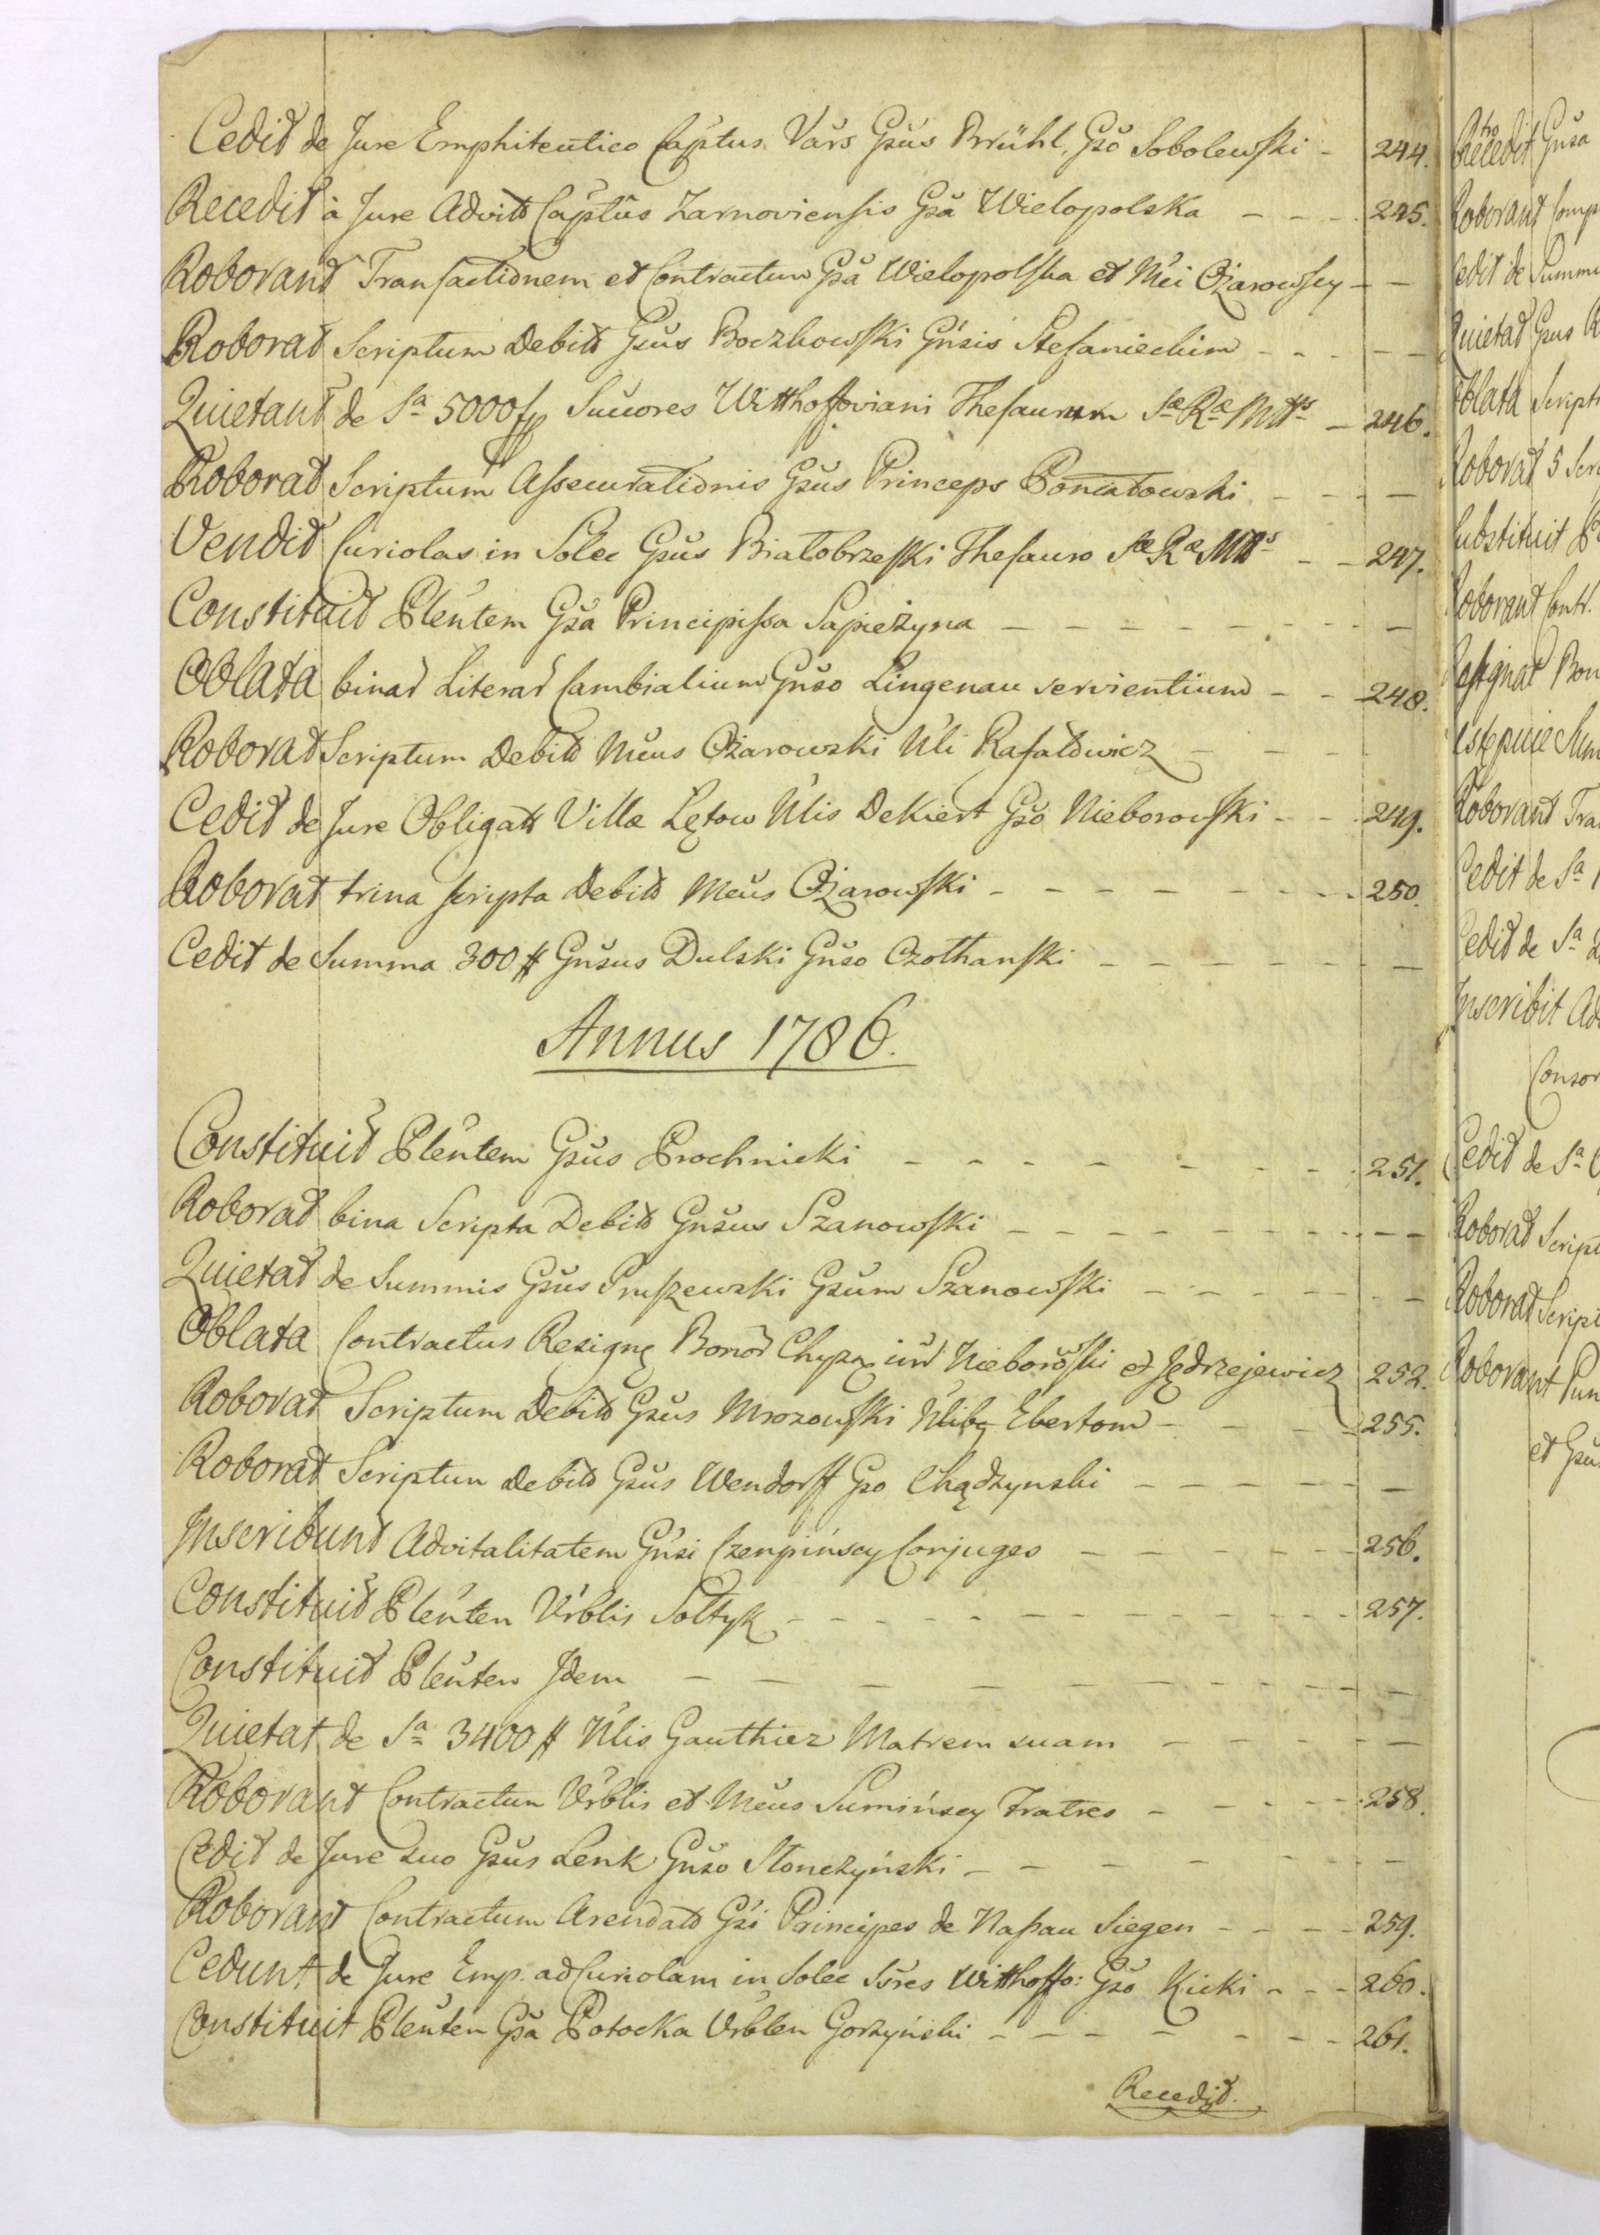 Cedit de Jure Emphiteutico Captus Vars Gsus Brühl, Gso Sobolewski - 244.
Recedit à Jure Advitt Captus Zarnoviensis Gsa Wielopolska - - - 245.
Roborant Transactionem et Contractum Gsa Wielopolska et Mci Ożarowscy - -
Roborat Scriptum Debiti Gsus Boczkowski Gnsis Stefaniechim - - - - -
Quietant de Sa 5000 fp Suc̄ores Witthoffoviani Thesaurum Sæ Ræ Mttis - 246.
Roborat Scriptum Assecurationis Gsus Princeps Poniatowski - - - -
Vendit Curiolas in Solec Gsus Białobrzeski Thesauro Sæ Ræ Mttis - - 247.
Constituit Plentem Gsa Principissa Sapieżyna - - - - - - - - -
Oblata binar Literar Cambialium Gnso Lingenau servientium - - 248.
Roborat Scriptum Debiti Mcus Ożarowski Nli Rafałowicz - - -
Cedit de Jure Obligatt Villæ Lętow Nlis Dekiert Gso Nieborowski - - 249.
Roborat trina scripta Debiti Mcus Ożarowski - - - - - - - - 250.
Cedit de Summa 300 # Gnsus Dulski Gnso Czothanski - - - - - - - -
Annus 1786.
Constituit Plentem Gsus Prochnicki - - - - - - - - 251.
Roborat bina Scripta Debiti Gnsus Szanowski - - - - - - - - - -
Quietat de Summis Gsus Pruszewski Gsum Szanowski - - - - - - -
Oblata Contractus Resigne Bonor inr Nieborowski et Jędrzejewicz 252.
Roborat Scriptum Debiti Gsus Mrozowski Nlibg Ebertom - - - - 255.
Roborat Scriptum Debiti Gsus Wendorff Gso Chądzynski - - - - - -
Inscribunt Advitalitatem Gnsi Czenpińscy Conjuges - - - - - - 256.
Constituit Plenten Vrblis Sołtyk - - - - - - - - - - - - - 257.
Constituit Plenten Idem - - - - - - - - - - -
Quietat de Sa 3400 # Nlis Gauthier Matrem suam - - - - - -
Roborant Contractum Vrblis et Mcus Sumińscy Fratres - - - - - 258.
Cedit de Jure suo Gsus Lenk Gnso Słonczyński - - - - - - -
Roborant Contractum Arendatt Gsi Principes de Nassau Siegen - - - - 259.
Cedunt de Jure Emp. ad Curiolam in Solec Ssres Witthoffo: Gso Kicki - - - 260.
Constituit Plenten Gsa Potocka Vrblen Gorzyński - - - - - - - - 261.
Recedit.
Recedit Gnsa
Roborant Comp
Cedit de Summ
Quietat Gsus R
Oblata Script
Roborat 5 Scri
Substituit
Roborant Contr.
Resignat Bon
Ustępuie Sum
Roborant Tra
Cedit de Sa
Cedit de Sa
Inscribit Ad
Consor
Cedit de Sa
Roborat Script
Roborat Script
Roborant Pun
et Gsu